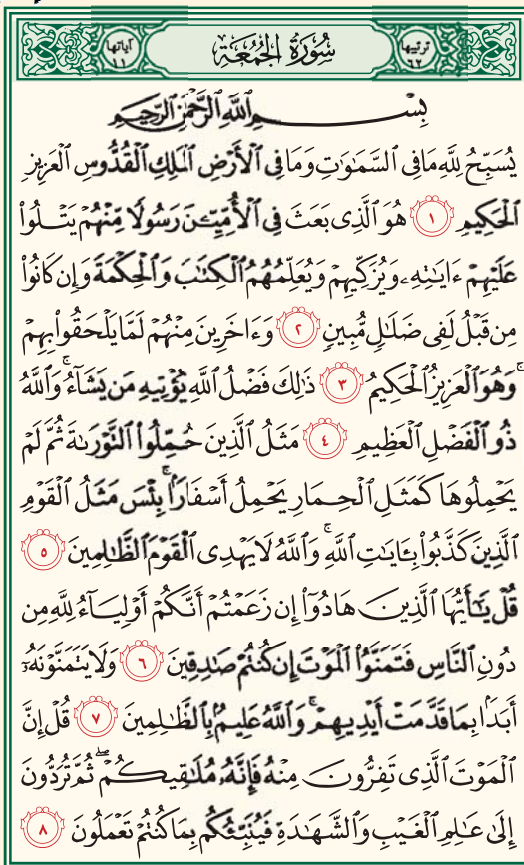 ترتيبها ٦٢ سُورَةُ الجُمُعَةِ آياتها ١١
بِسْمِ اللَّهِ الرَّحْمَٰنِ الرَّحِيمِ
يُسَبِّحُ لِلَّهِ مَا فِي السَّمَٰوَٰتِ وَمَا فِي الْأَرْضِ الْمَلِكِ الْقُدُّوسِ الْعَزِيزِ
الْحَكِيمِ ١ هُوَ الَّذِي بَعَثَ فِي الْأُمِّيِّـۧنَ رَسُولًا مِّنْهُمْ يَتْلُوا۟
عَلَيْهِمْ ءَايَٰتِهِۦ وَيُزَكِّيهِمْ وَيُعَلِّمُهُمُ الْكِتَٰبَ وَالْحِكْمَةَ وَإِن كَانُوا۟
مِن قَبْلُ لَفِي ضَلَٰلٍ مُّبِينٍ ٢ وَءَاخَرِينَ مِنْهُمْ لَمَّا يَلْحَقُوا۟ بِهِمْ
وَهُوَ الْعَزِيزُ الْحَكِيمُ ٣ ذَٰلِكَ فَضْلُ اللَّهِ يُؤْتِيهِ مَن يَشَآءُ ۚ وَاللَّهُ
ذُو الْفَضْلِ الْعَظِيمِ ٤ مَثَلُ الَّذِينَ حُمِّلُوا۟ التَّوْرَىٰةَ ثُمَّ لَمْ
يَحْمِلُوهَا كَمَثَلِ الْحِمَارِ يَحْمِلُ أَسْفَارًۢا ۚ بِئْسَ مَثَلُ الْقَوْمِ
الَّذِينَ كَذَّبُوا۟ بِـَٔايَٰتِ اللَّهِ ۚ وَاللَّهُ لَا يَهْدِي الْقَوْمَ الظَّٰلِمِينَ ٥
قُلْ يَٰٓأَيُّهَا الَّذِينَ هَادُوٓا۟ إِن زَعَمْتُمْ أَنَّكُمْ أَوْلِيَآءُ لِلَّهِ مِن
دُونِ النَّاسِ فَتَمَنَّوُا۟ الْمَوْتَ إِن كُنتُمْ صَٰدِقِينَ ٦ وَلَا يَتَمَنَّوْنَهُۥٓ
أَبَدًۢا بِمَا قَدَّمَتْ أَيْدِيهِمْ ۚ وَاللَّهُ عَلِيمٌۢ بِالظَّٰلِمِينَ ٧ قُلْ إِنَّ
الْمَوْتَ الَّذِي تَفِرُّونَ مِنْهُ فَإِنَّهُۥ مُلَٰقِيكُمْ ۖ ثُمَّ تُرَدُّونَ
إِلَىٰ عَٰلِمِ الْغَيْبِ وَالشَّهَٰدَةِ فَيُنَبِّئُكُم بِمَا كُنتُمْ تَعْمَلُونَ ٨